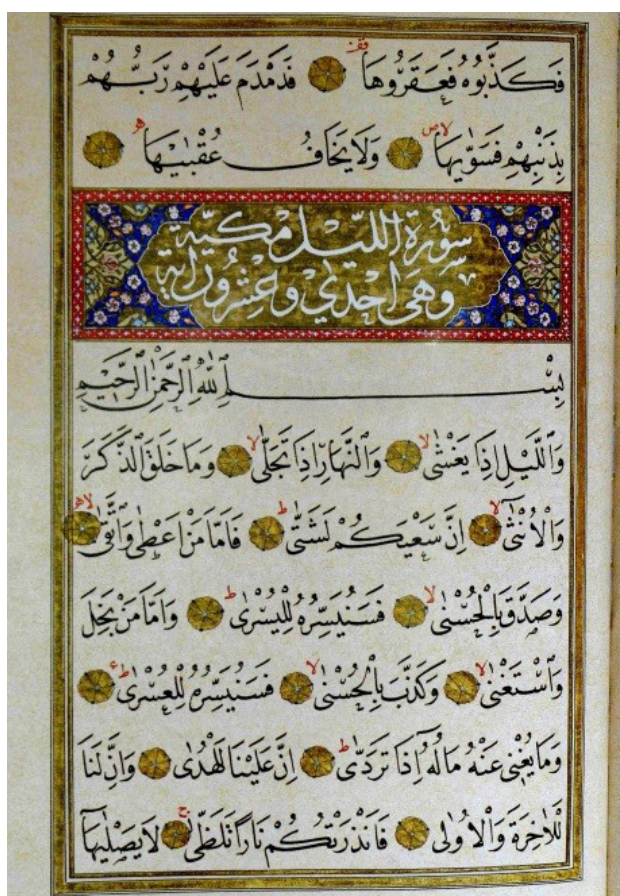 فَكَذَّبُوهُ فَعَقَرُوهَا قف فَدَمْدَمَ عَلَيْهِمْ رَبُّهُمْ
بِذَنْبِهِمْ فَسَوّٰيهَا لاص وَلَا يَخَافُ عُقْبٰيهَا
سُورَةُ اللَّيْلِ مَكِّيَّة
وَهِيَ اِحْدٰي وَعِشْرُونَ اٰيَة
بِسْمِ اللّٰهِ الرَّحْمٰنِ الرَّحِيمِ
وَالَّيْلِ اِذَا يَغْشٰى لا وَالنَّهَارِ اِذَا تَجَلّٰى لا وَمَا خَلَقَ الذَّكَرَ
وَالْاُنْثٰى لا اِنَّ سَعْيَكُمْ لَشَتّٰى ط فَاَمَّا مَنْ اَعْطٰى وَاتَّقٰى لا
وَصَدَّقَ بِالْحُسْنٰى لا فَسَنُيَسِّرُهُ لِلْيُسْرٰى ط وَاَمَّا مَنْ بَخِلَ
وَاسْتَغْنٰى لا وَكَذَّبَ بِالْحُسْنٰى لا فَسَنُيَسِّرُهُ لِلْعُسْرٰى ط
وَمَا يُغْنِى عَنْهُ مَالُهُ اِذَا تَرَدّٰى ط اِنَّ عَلَيْنَا لَلْهُدٰى وَاِنَّ لَنَا
لَلْاٰخِرَةَ وَالْاُولٰى فَاَنْذَرْتُكُمْ نَارًا تَلَظّٰى ج لَا يَصْلٰيهَا